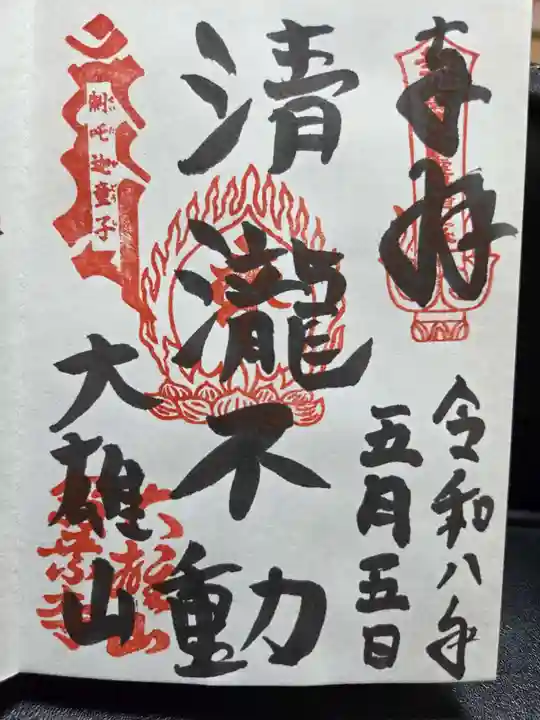 奉拝
令和八年
五月五日
清瀧不動
大雄山
制吒迦童子